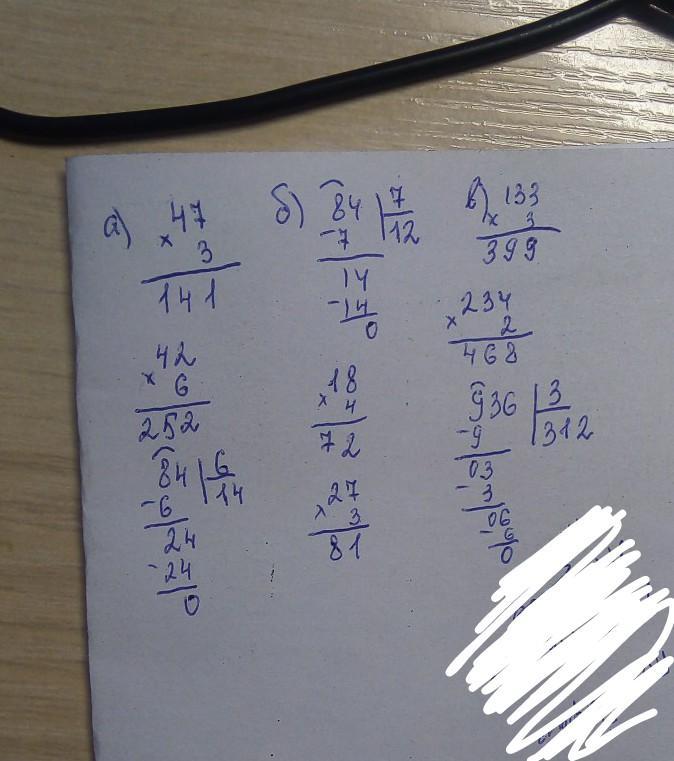 а) 47
× 3
141
× 42
6
252
84 | 6
- 6 14
24
- 24
0
б) 84 | 7
- 7 12
14
- 14
0
× 18
4
72
× 27
3
81
в) 133
× 3
399
× 234
2
468
936 | 3
- 9 312
03
- 3
06
- 6
0